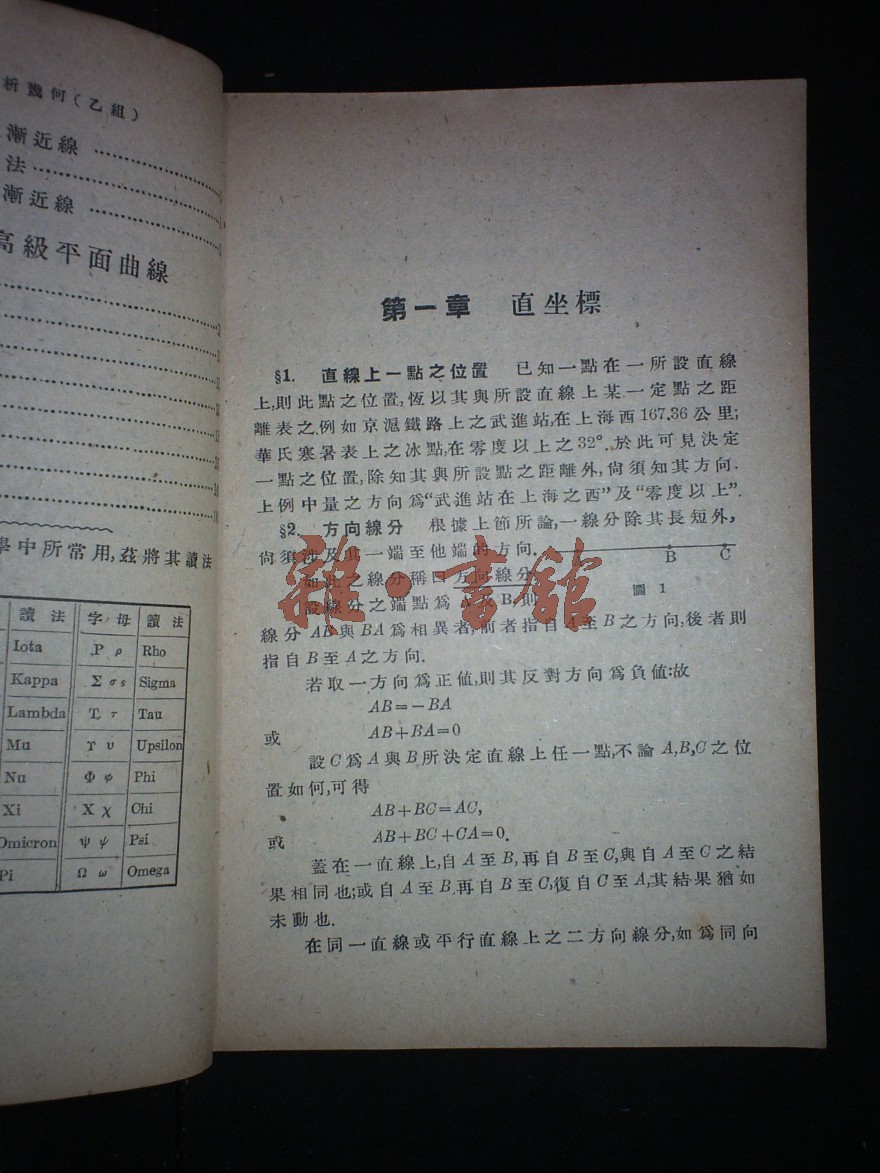 析幾何(乙組)
漸近線
法
漸近線
高級平面曲線
學中所常用,茲將其讀法
讀法 字母 讀法
Iota Ρ ρ Rho
Kappa Σ σ s Sigma
Lambda Τ τ Tau
Mu Υ υ Upsilon
Nu Φ φ Phi
Xi Χ χ Chi
Omicron Ψ ψ Psi
Pi Ω ω Omega
第一章 直坐標
§1. 直線上一點之位置 已知一點在一所設直線
上,則此點之位置,恆以其與所設直線上某一定點之距
離表之.例如京滬鐵路上之武進站,在上海西167.36公里;
華氏寒暑表上之冰點,在零度以上之32°.於此可見決定
一點之位置,除知其與所設點之距離外,尙須知其方向.
上例中量之方向爲“武進站在上海之西”及“零度以上”.
§2. 方向線分 根據上節所論,一線分除其長短外,
尙須涉及其一端至他端的方向.
如此之線分稱曰方向線分.
B C
圖 1
設線分之端點爲A及B,則
線分AB與BA爲相異者,前者指自A至B之方向,後者則
指自B至A之方向.
若取一方向爲正值,則其反對方向爲負值:故
AB=-BA
或 AB+BA=0
設C爲A與B所決定直線上任一點,不論A,B,C之位
置如何,可得
AB+BC=AC,
或 AB+BC+CA=0.
蓋在一直線上,自A至B,再自B至C,與自A至C之結
果相同也;或自A至B,再自B至C,復自C至A,其結果猶如
未動也.
在同一直線或平行直線上之二方向線分,如爲同向
雜·書館